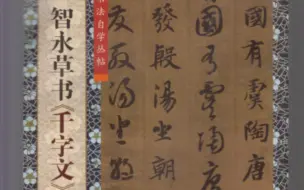 智永草书《千字文》
书法自学丛帖
國有虞陶唐
國有虞陶唐
發殷湯坐朝
發殷湯坐朝